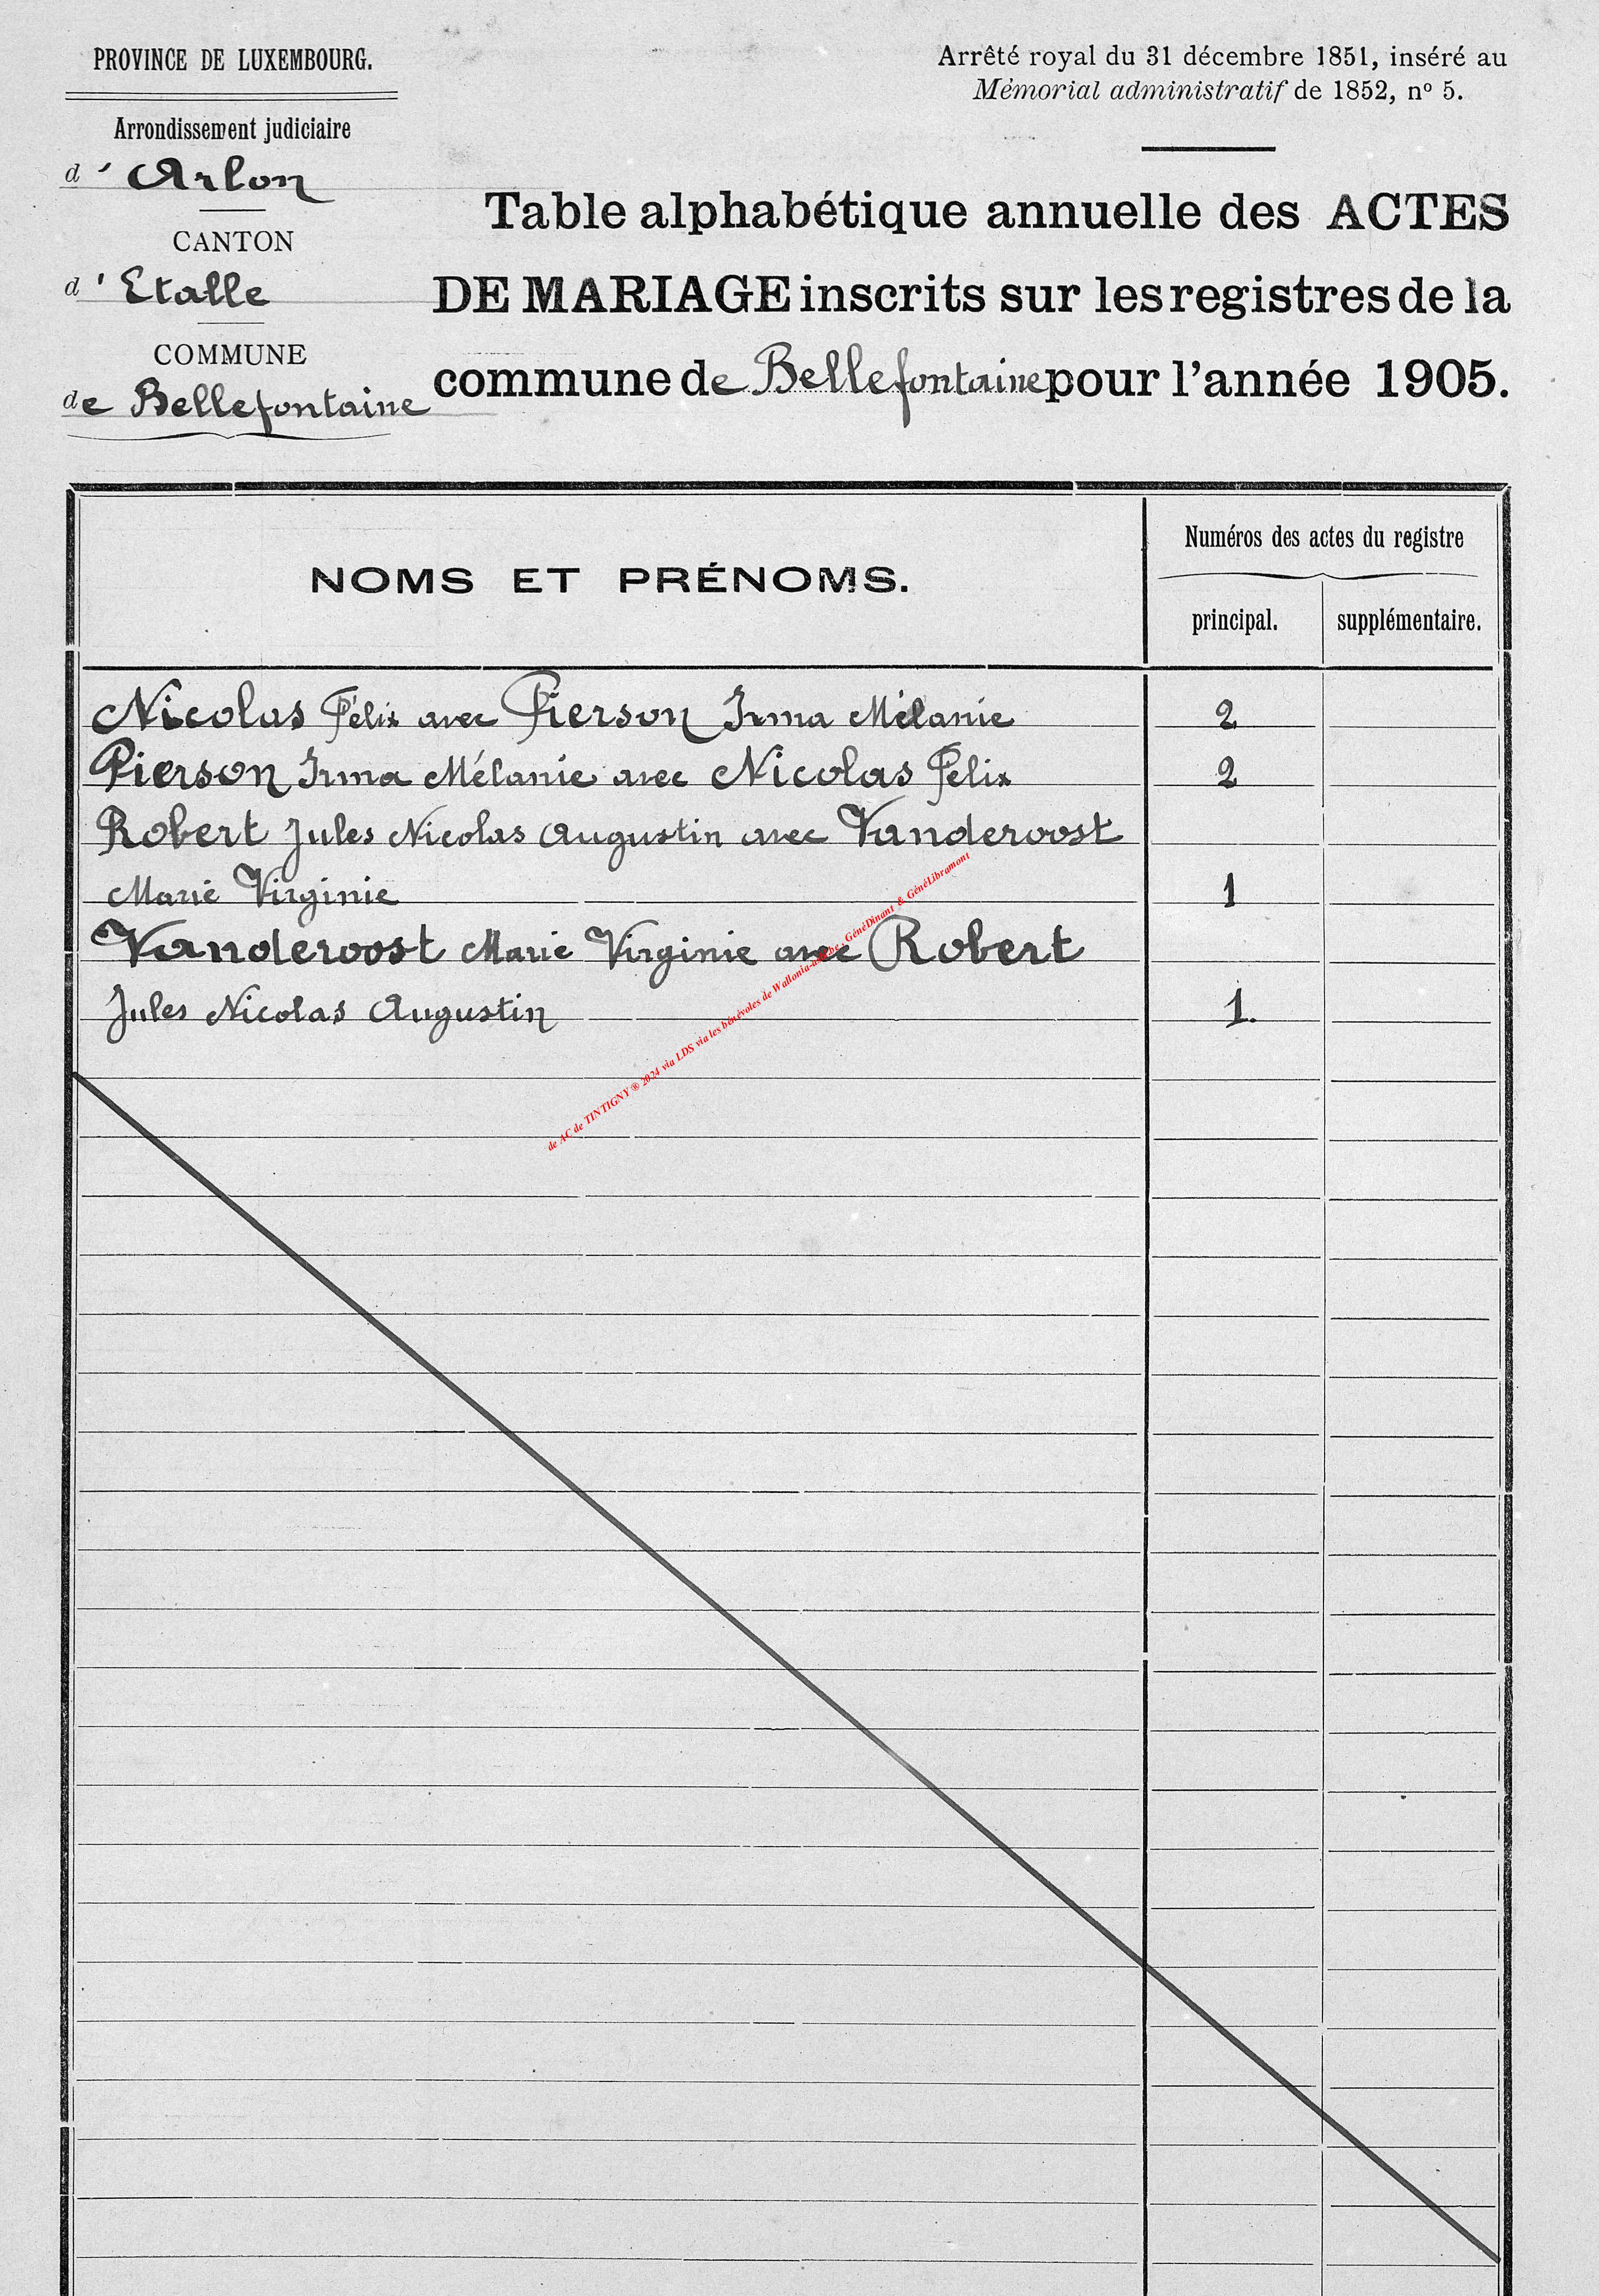 PROVINCE DE LUXEMBOURG.
Arrondissement judiciaire
d' Arlon
CANTON
d' Etalle
COMMUNE
de Bellefontaine
Arrêté royal du 31 décembre 1851, inséré au
Mémorial administratif de 1852, nº 5.
Table alphabétique annuelle des ACTES
DE MARIAGE inscrits sur les registres de la
commune de Bellefontaine pour l'année 1905.
NOMS ET PRÉNOMS.
Numéros des actes du registre
principal. supplémentaire.
Nicolas Félix avec Pierson Irma Mélanie 2
Pierson Irma Mélanie avec Nicolas Félix 2
Robert Jules Nicolas Augustin avec Vanderoost
Marie Virginie 1
Vanderoost Marie Virginie avec Robert
Jules Nicolas Augustin 1.
de AC de TINTIGNY ® 2024 via LDS via les bénévoles de GénéDinant & GénéLibramont